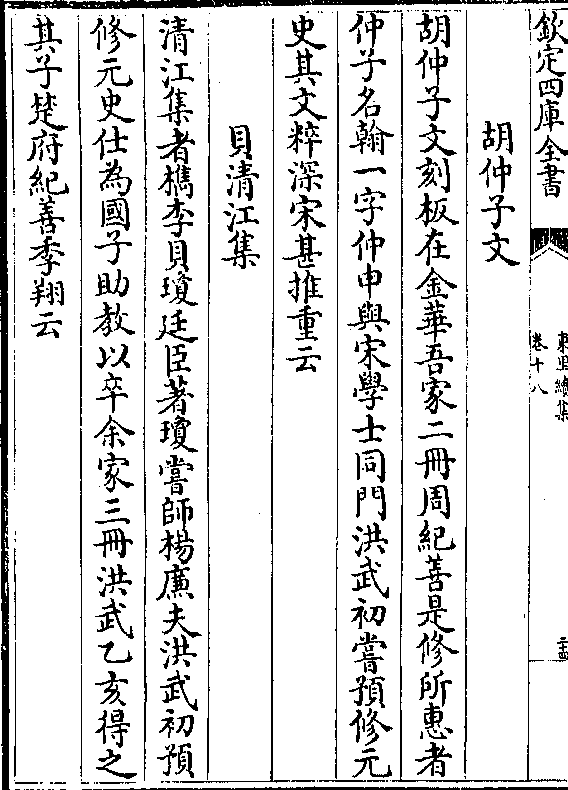 欽定四庫全書
東里續集
卷十八
胡仲子文
胡仲子文刻板在金華吾家二冊周紀善是修所惠者
仲子名翰一字仲申與宋學士同門洪武初嘗預修元
史其文粹深宋甚推重云
貝清江集
清江集者檇李貝瓊廷臣著瓊嘗師楊廉夫洪武初預
修元史仕為國子助教以卒余家三冊洪武乙亥得之
其子楚府紀善季翔云